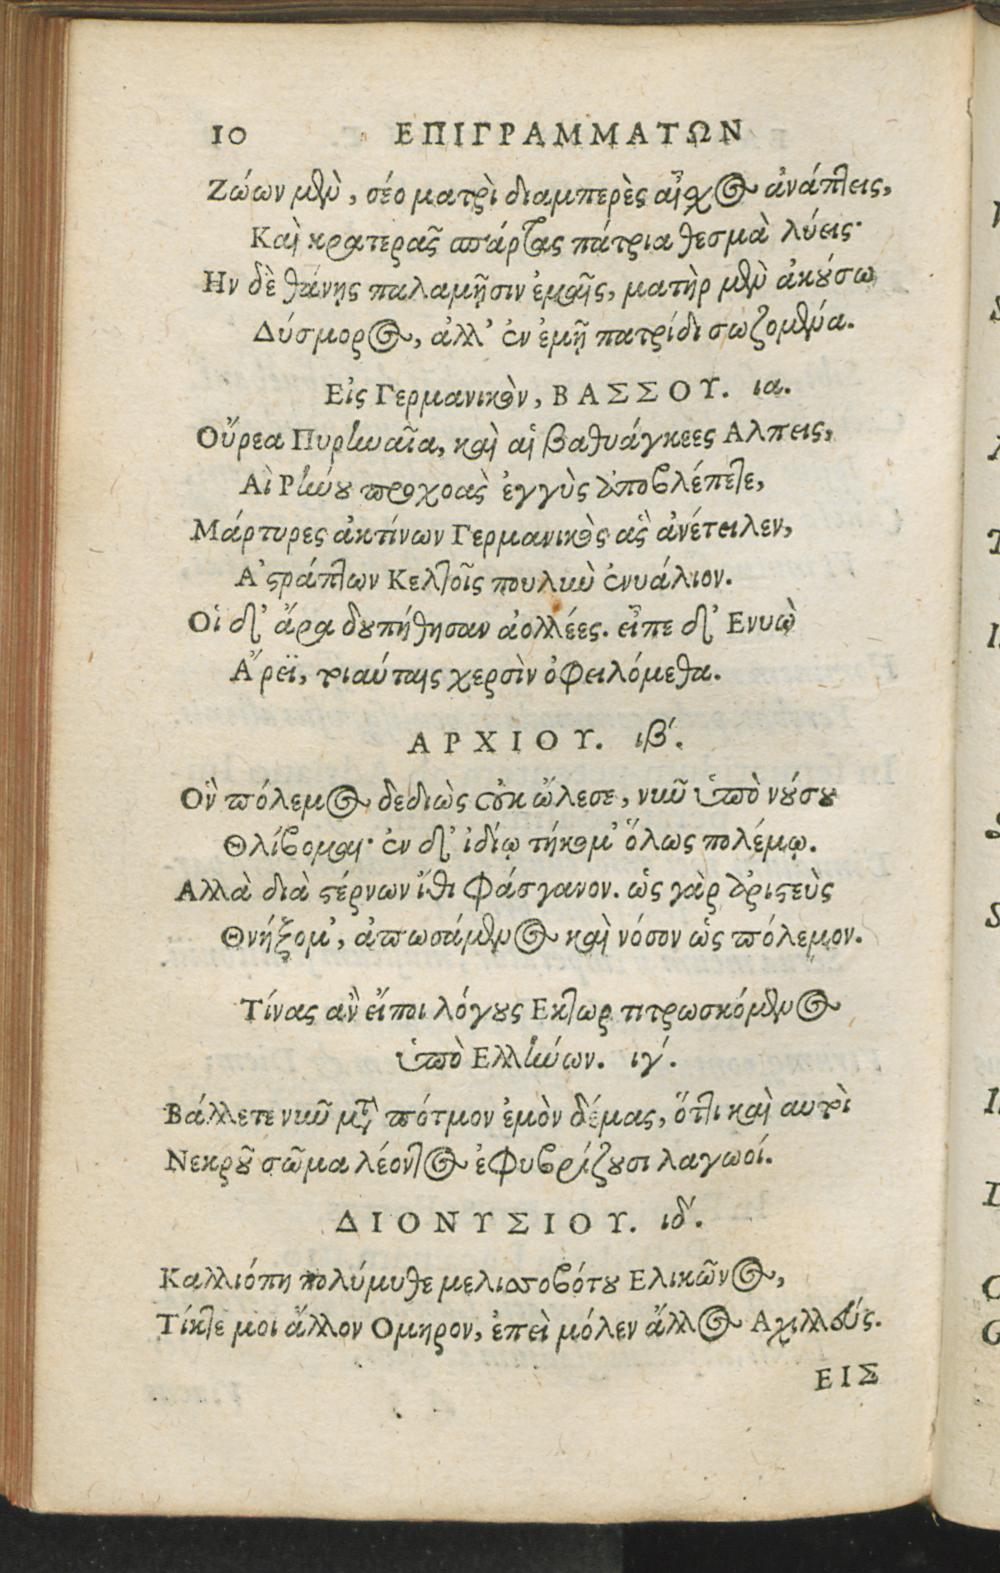 10 ΕΠΙΓΡΑΜΜΑΤΩΝ
Ζώων μὲν, σέο ματρὶ διαμπερὲς αἶχος ἀνάπτεις,
Καὶ κρατερᾶς σπάρτας πάτρια θεσμὰ λύεις·
Ην δὲ θάνης παλαμῇσιν ἐμαῖς, ματὴρ μὲν ἀκούσω
Δύσμορος, ἀλλ' ἐν ἐμῇ πατρίδι σωζομένα.
Εἰς Γερμανικὸν, ΒΑΣΣΟΥ. ια.
Οὔρεα Πυρηναῖα, καὶ αἱ βαθυάγκεες Αλπεις,
Αἱ Ρήνου προχοὰς ἐγγὺς ἀποβλέπετε,
Μάρτυρες ἀκτίνων Γερμανικὸς ἃς ἀνέτειλεν,
Ἀστράπτων Κελτοῖς πουλὺν ἐνυάλιον.
Οἱ δ' ἄρα δουπήθησαν ἀολλέες. εἶπε δ' Ενυὼ
Ἄρεϊ, τοιαύταις χερσὶν ὀφειλόμεθα.
ΑΡΧΙΟΥ. ιβ'.
Ὃν πόλεμος δεδιὼς οὐκ ὤλεσε, νῦν ὑπὸ νούσου
Θλίβομαι· ἐν δ' ἰδίῳ τήκομ' ὅλως πολέμῳ.
Αλλὰ διὰ στέρνων ἴθι φάσγανον. ὡς γὰρ ἀριστεὺς
Θνήξομ', ἀπωσάμενος καὶ νόσον ὡς πόλεμον.
Τίνας ἂν εἴποι λόγους Εκτωρ τιτρωσκόμενος
ὑπὸ Ελλήνων. ιγ'.
Βάλλετε νῦν μετὰ πότμον ἐμὸν δέμας, ὅττι καὶ αυτοὶ
Νεκροῦ σῶμα λέοντος ἐφυβρίζουσι λαγωοί.
ΔΙΟΝΥΣΙΟΥ. ιδ'.
Καλλιόπη πολύμυθε μελισσοβότου Ελικῶνος,
Τίκτε μοι ἄλλον Ομηρον, ἐπεὶ μόλεν ἄλλος Αχιλλεύς.
ΕΙΣ